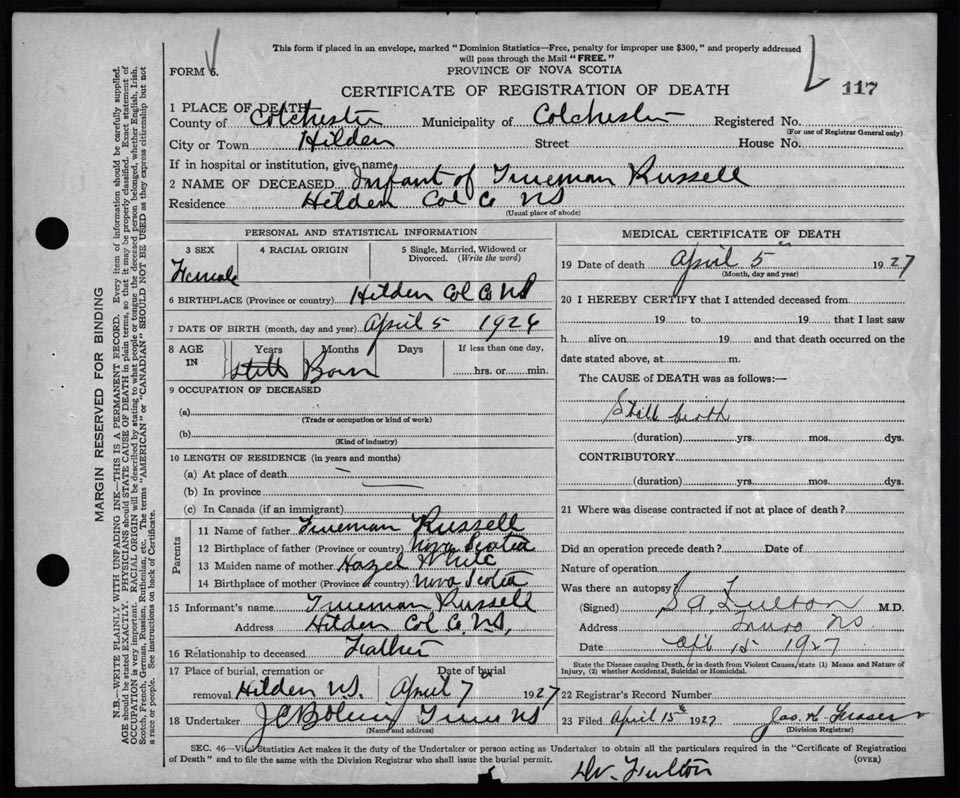 This form if placed in an envelope, marked "Dominion Statistics—Free, penalty for improper use $300," and properly addressed
will pass through the Mail "FREE."
FORM 6.
PROVINCE OF NOVA SCOTIA
117
CERTIFICATE OF REGISTRATION OF DEATH
1 PLACE OF DEATH
County of Colchester Municipality of Colchester Registered No.
(For use of Registrar General only)
City or Town Hilden Street House No.
If in hospital or institution, give name
2 NAME OF DECEASED Infant of Trueman Russell
Residence Hilden Col Co NS
(Usual place of abode)
PERSONAL AND STATISTICAL INFORMATION
3 SEX 4 RACIAL ORIGIN 5 Single, Married, Widowed or
Divorced. (Write the word)
Female
6 BIRTHPLACE (Province or country) Hilden Col Co NS
7 DATE OF BIRTH (month, day and year) April 5 1926
8 AGE IN Years Months Days If less than one day,
Still Born hrs. or min.
9 OCCUPATION OF DECEASED
(a)
(Trade or occupation or kind of work)
(b)
(Kind of industry)
10 LENGTH OF RESIDENCE (in years and months)
(a) At place of death
(b) In province
(c) In Canada (if an immigrant)
Parents
11 Name of father Trueman Russell
12 Birthplace of father (Province or country) Nova Scotia
13 Maiden name of mother Hazel White
14 Birthplace of mother (Province or country) Nova Scotia
15 Informant's name Trueman Russell
Address Hilden Col Co, NS,
16 Relationship to deceased Father
17 Place of burial, cremation or Date of burial
removal. Hilden NS. April 7 1927
18 Undertaker J C NS
(Name and address)
MEDICAL CERTIFICATE OF DEATH
19 Date of death April 5 1927
(Month, day and year)
20 I HEREBY CERTIFY that I attended deceased from
19 to 19 that I last saw
h alive on 19 and that death occurred on the
date stated above, at m.
The CAUSE of DEATH was as follows:—
Still birth
(duration) yrs. mos. dys.
CONTRIBUTORY
(duration) yrs. mos. dys.
21 Where was disease contracted if not at place of death?
Did an operation precede death? Date of
Nature of operation
Was there an autopsy
(Signed) S A Fulton M.D.
Address Truro NS
Date Apl 15 1927
State the Disease causing Death, or in death from Violent Causes, state (1) Means and Nature of
Injury, (2) whether Accidental, Suicidal or Homicidal.
22 Registrar's Record Number
23 Filed April 15th 1927 Jas. H. Fraser
(Division Registrar)
SEC. 46—Vital Statistics Act makes it the duty of the Undertaker or person acting as Undertaker to obtain all the particulars required in the "Certificate of Registration
of Death" and to file the same with the Division Registrar who shall issue the burial permit.
(OVER)
Dr. Fulton
MARGIN RESERVED FOR BINDING
N.B.—WRITE PLAINLY WITH UNFADING INK—THIS IS A PERMANENT RECORD. Every item of information should be carefully supplied.
AGE should be stated EXACTLY. PHYSICIANS should STATE CAUSE OF DEATH in plain terms, so that it may be properly classified. Exact statement of
OCCUPATION is very important. RACIAL ORIGIN will be described by stating to what people or tongue the deceased person belonged, whether English, Irish,
Scotch, French, German, Russian, Ruthenian, etc. The terms "AMERICAN" or "CANADIAN" SHOULD NOT BE USED as they express citizenship but not
a race or people. See instructions on back of Certificate.